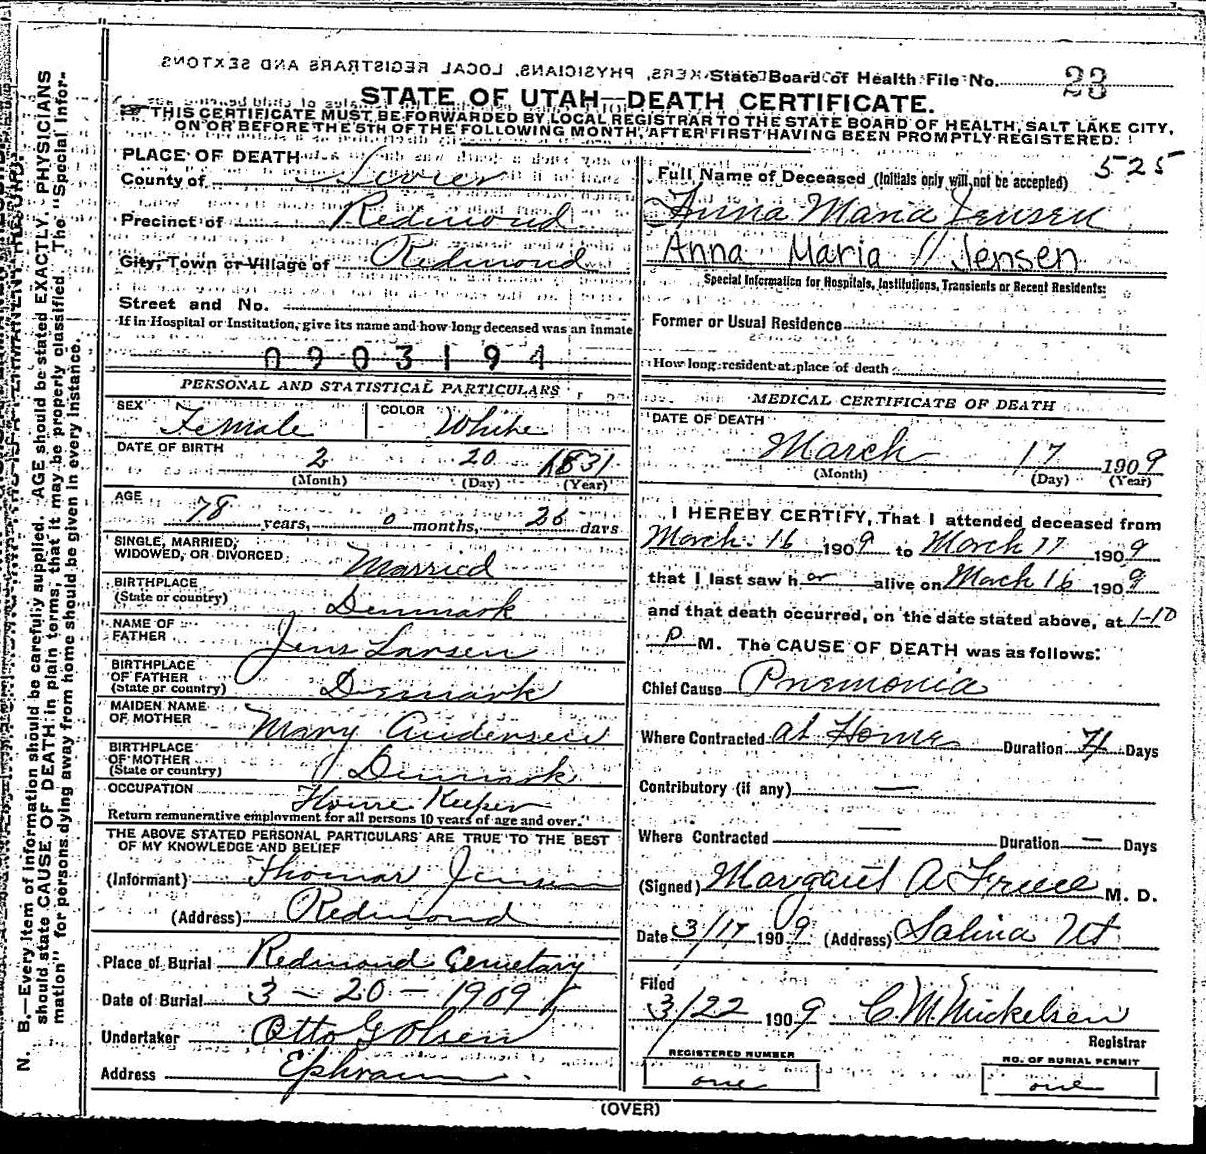 State Board of Health File No. 23
STATE OF UTAH—DEATH CERTIFICATE.
THIS CERTIFICATE MUST BE FORWARDED BY LOCAL REGISTRAR TO THE STATE BOARD OF HEALTH, SALT LAKE CITY,
ON OR BEFORE THE 5TH OF THE FOLLOWING MONTH, AFTER FIRST HAVING BEEN PROMPTLY REGISTERED.
PLACE OF DEATH
County of Sevier
Precinct of Redmond
City, Town or Village of Redmond
Street and No.
If in Hospital or Institution, give its name and how long deceased was an inmate
0903194
PERSONAL AND STATISTICAL PARTICULARS
SEX Female COLOR White
DATE OF BIRTH 2 20 1831
(Month) (Day) (Year)
AGE 78 years, 0 months, 26 days
SINGLE, MARRIED,
WIDOWED, OR DIVORCED Married
BIRTHPLACE
(State or country) Denmark
NAME OF
FATHER Jens Larsen
BIRTHPLACE
OF FATHER
(State or country) Denmark
MAIDEN NAME
OF MOTHER Mary Andersen
BIRTHPLACE
OF MOTHER
(State or country) Denmark
OCCUPATION House Keeper
Return remunerative employment for all persons 10 years of age and over."
THE ABOVE STATED PERSONAL PARTICULARS ARE TRUE TO THE BEST
OF MY KNOWLEDGE AND BELIEF
(Informant) Thomas Jensen
(Address) Redmond
Place of Burial Redmond Cemetary
Date of Burial 3-20-1909
Undertaker Otto G Olsen
Address Ephraim
525
Full Name of Deceased (Initials only will not be accepted)
Anna Maria Jensen
Anna Maria // Jensen
Special Information for Hospitals, Institutions, Transients or Recent Residents:
Former or Usual Residence
How long resident at place of death
MEDICAL CERTIFICATE OF DEATH
DATE OF DEATH
March 17 1909
(Month) (Day) (Year)
I HEREBY CERTIFY, That I attended deceased from
March 16 1909 to March 17 1909
that I last saw her alive on March 16 1909
and that death occurred, on the date stated above, at 1-10
P M. The CAUSE OF DEATH was as follows:
Chief Cause Pnemonia
Where Contracted at Home Duration Days
Contributory (if any) —
Where Contracted — Duration — Days
(Signed) Margaret A M. D.
Date 3/17 1909 (Address) Salina Ut
Filed
3/22 1909 C M Mickelsen
Registrar
REGISTERED NUMBER
one
NO. OF BURIAL PERMIT
one
(OVER)
N. B.—Every item of information should be carefully supplied. AGE should be stated EXACTLY. PHYSICIANS
should state CAUSE OF DEATH in plain terms, that it may be properly classified. The "Special Infor-
mation" for persons dying away from home should be given in every instance.